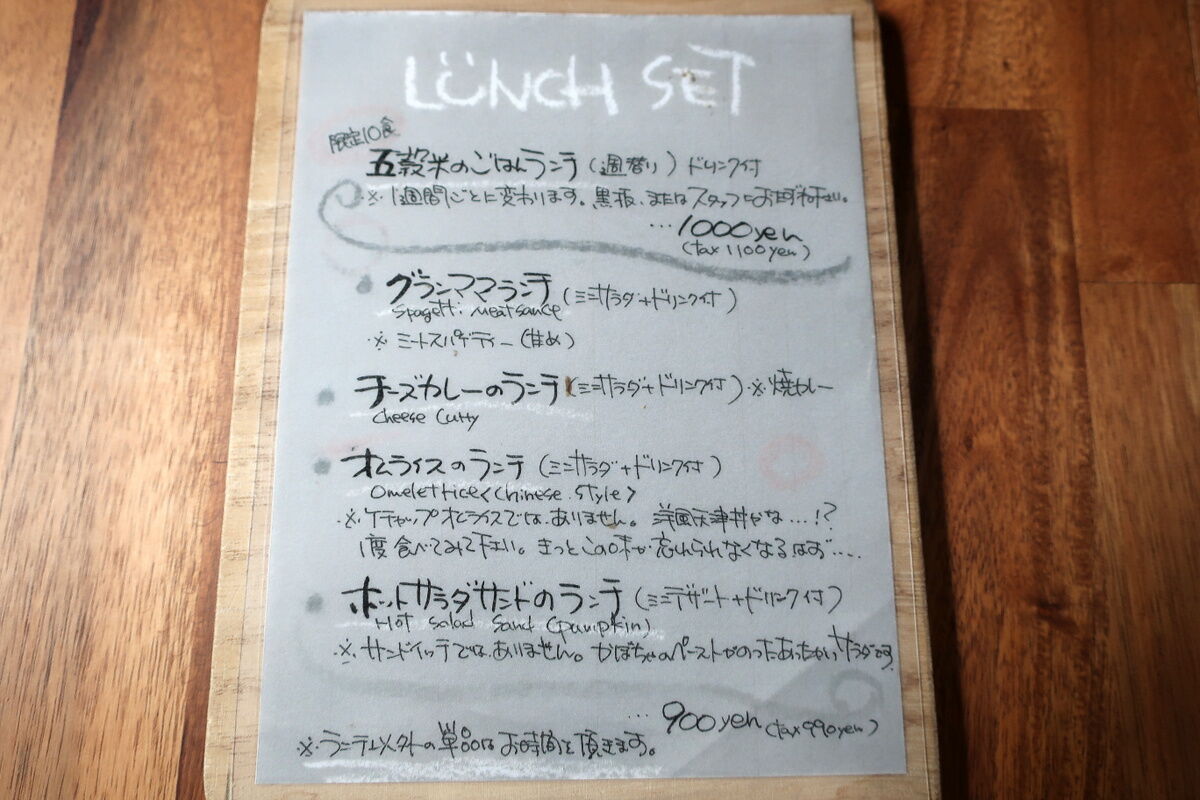 LÜNCH SET
限定10食
五穀米のごはんランチ (週替り) ドリンク付
※1週間ごとに変わります。黒板、またはスタッフにおたずね下さい。
…1000yen
(tax 1100yen)
グランママランチ (ミニサラダ+ドリンク付)
Spagetti meatsauce
※ミートスパゲティー (甘め)
チーズカレーのランチ (ミニサラダ+ドリンク付) ※焼カレー
Cheese Curry
オムライスのランチ (ミニサラダ+ドリンク付)
Omelet rice <Chinese style>
※ケチャップオムライスではありません。洋風天津丼かな…!?
1度食べてみて下さい。きっとこの味が忘れられなくなるはず…
ホットサラダサンドのランチ (ミニデザート+ドリンク付)
Hot salad sand (pumpkin)
※サンドイッチではありません。かぼちゃのペーストがのったあったかいサラダです
…900yen (tax 990yen)
※ランチ以外の単品はお時間を頂きます。